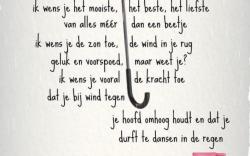 ik wens je het mooiste, het beste, het liefste
van alles méér dan een beetje
ik wens je de zon toe, de wind in je rug
geluk en voorspoed, maar weet je?
ik wens je vooral de kracht toe
dat je bij wind tegen
je hoofd omhoog houdt en dat je
durft te dansen in de regen